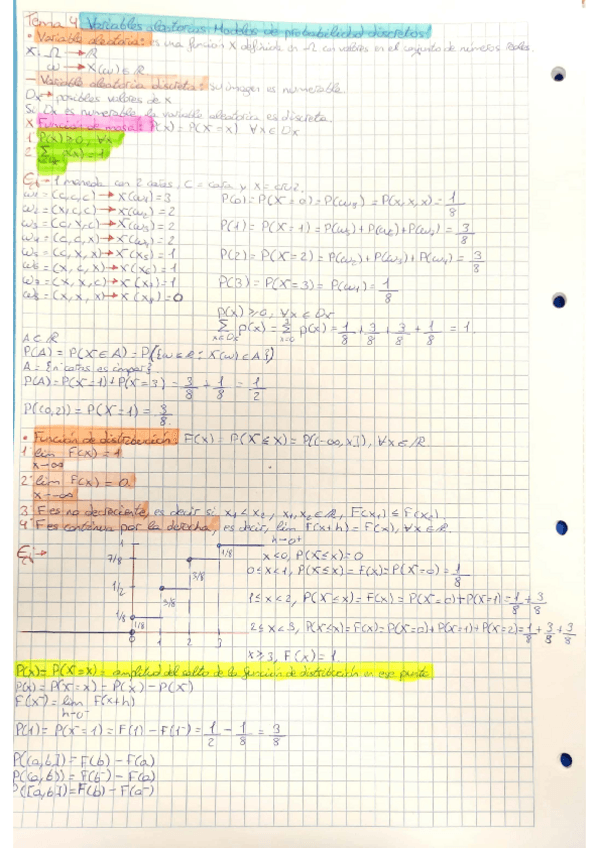 Tema 4: Variables aleatorias. Modelos de probabilidad discretos.
• Variable aleatoria: es una función X definida en Ω con valores en el conjunto de números reales.
X: Ω → R
ω → X(ω) ∈ R
— Variable aleatoria discreta: su imagen es numerable.
Dx → posibles valores de x
Si Dx es numerable la variable aleatoria es discreta.
x Función de masa: P(x) = P(X = x) ∀x ∈ Dx
1 P(x) ≥ 0, ∀x
2 Σ p(x) = 1
Ej → 1 moneda con 2 caras, C = cara y X = cruz.
ω1 = (c,c,c) → X(ω1) = 3
ω2 = (x,c,c) → X(ω2) = 2
ω3 = (c,x,c) → X(ω3) = 2
ω4 = (c,c,x) → X(ω4) = 2
ω5 = (c,x,x) → X(x5) = 1
ω6 = (x,c,x) → X(x6) = 1
ω7 = (x,x,c) → X(x7) = 1
ω8 = (x,x,x) → X(x8) = 0
P(0) = P(X = 0) = P(ω8) = P(x,x,x) = 1/8
P(1) = P(X = 1) = P(ω5) + P(ω6) + P(ω7) = 3/8
P(2) = P(X = 2) = P(ω2) + P(ω3) + P(ω4) = 3/8
P(3) = P(X = 3) = P(ω1) = 1/8
p(x) ≥ 0, ∀x ∈ Dx
Σ x∈Dx p(x) = Σ p(x) = 1/8 + 3/8 + 3/8 + 1/8 = 1.
A ⊂ R
P(A) = P(X ∈ A) = P({ω ∈ Ω : X(ω) ∈ A})
A = {nº caras es impar}
P(A) = P(X = 1) + P(X = 3) = 3/8 + 1/8 = 1/2
P((0,2)) = P(X = 1) = 3/8
• Función de distribución: F(x) = P(X ≤ x) = P((-∞, x]), ∀x ∈ R.
1 lim F(x) = 1
x→∞
2 lim F(x) = 0
x→-∞
3 F es no decreciente, es decir si x1 < x2, x1, x2 ∈ R, F(x1) ≤ F(x2).
4 F es continua por la derecha, es decir, lim F(x+h) = F(x), ∀x ∈ R.
h→0+
Ej →
1
7/8
1/2
1/8
1/8
3/8
3/8
1/8
0 1 2 3
x < 0, P(X ≤ x) = 0
0 ≤ x < 1, P(X ≤ x) = F(x) = P(X = 0) = 1/8
1 ≤ x < 2, P(X ≤ x) = F(x) = P(X = 0) + P(X = 1) = 1/8 + 3/8
2 ≤ x < 3, P(X ≤ x) = F(x) = P(X = 0) + P(X = 1) + P(X = 2) = 1/8 + 3/8 + 3/8
x ≥ 3, F(x) = 1.
P(x) = P(X = x) = amplitud del salto de la función de distribución en ese punto
P(x) = P(X = x) = P(x) - P(x⁻)
F(x⁻) = lim F(x+h)
h→0⁻
P(1) = P(X = 1) = F(1) - F(1⁻) = 1/2 - 1/8 = 3/8
P((a,b]) = F(b) - F(a)
P((a,b)) = F(b⁻) - F(a)
P([a,b]) = F(b) - F(a⁻)